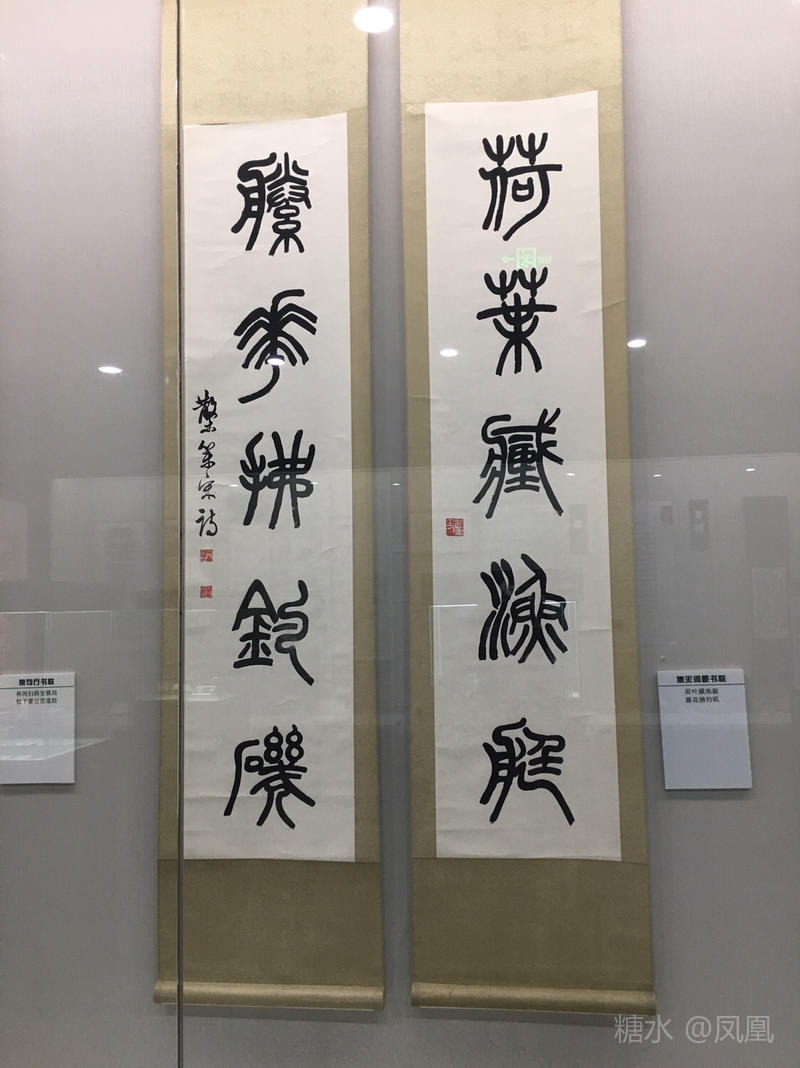 荷葉藏漁艇
藤花拂釣磯
集宋詩
集宋词篆书联
荷叶藏渔艇
藤花拂钓矶
集句行书联
林间扫药安棋局
松下看云读道经
糖水 @凤凰